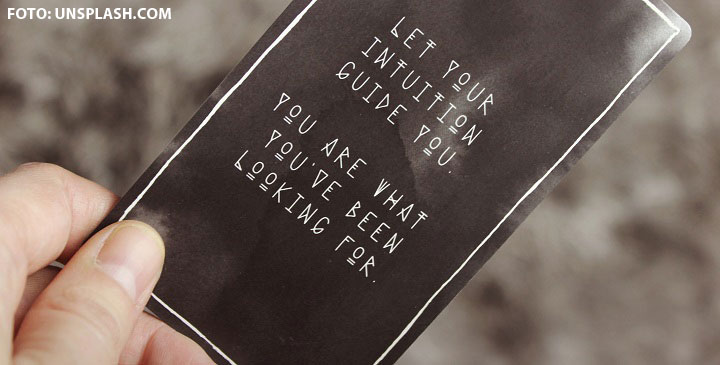 FOTO: UNSPLASH.COM
LET YOUR
INTUITION
GUIDE YOU.
YOU ARE WHAT
YOU'VE BEEN
LOOKING FOR.